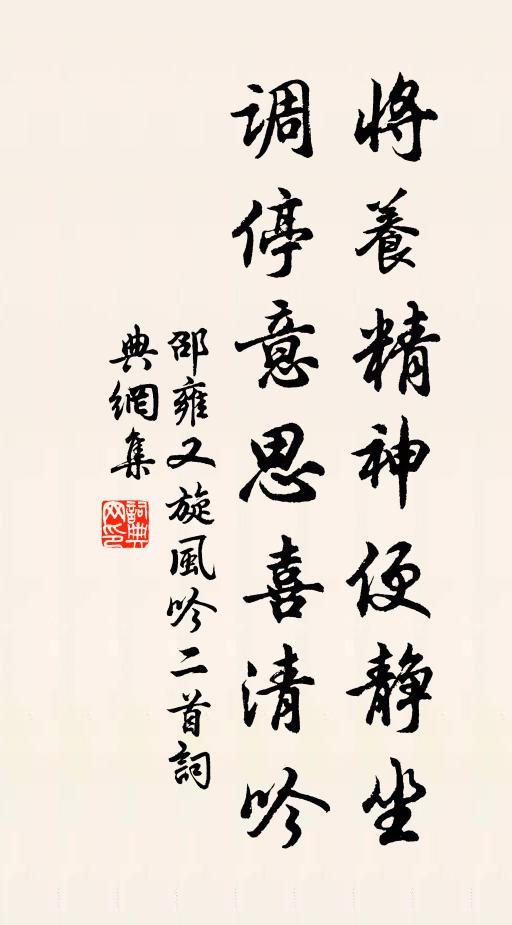 將養精神便靜坐
调停意思喜清吟
邵雍又旋風吟二首詞
典網集
詞典
网印